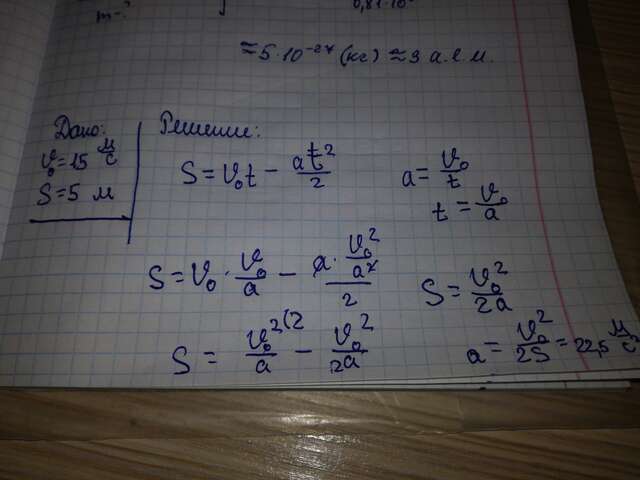 m-?
0,81·10
≈5·10⁻²⁷(кг) ≈ 3 а.е.м.
Дано:
v₀=15 м/с
S=5 м
Решение:
S = v₀t − at²/2
a = v₀/t
t = v₀/a
S = v₀ · v₀/a − a · v₀²/a² / 2
S = v₀²/2a
S = v₀²(2/a − v₀²/2a
a = v₀²/2S = 22,5 м/с²